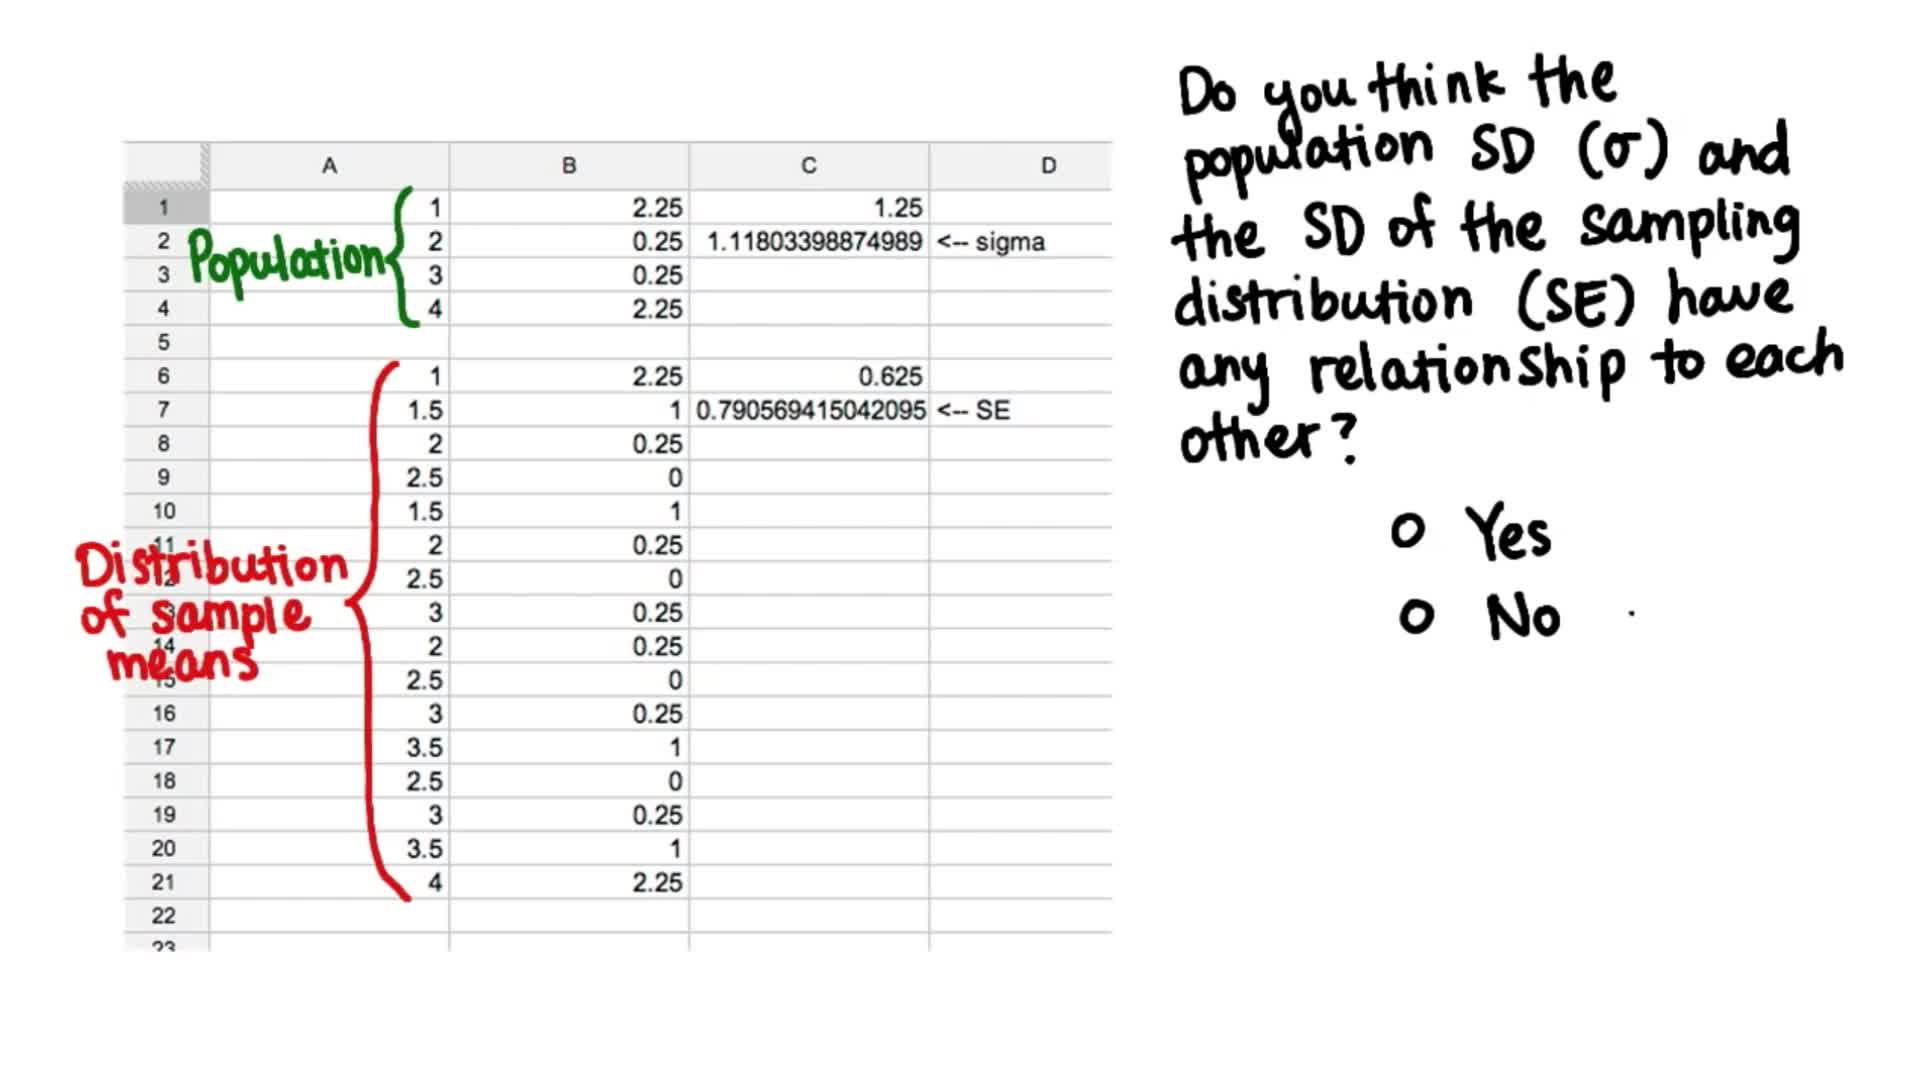 A B C D
1 1 2.25 1.25
2 2 0.25 1.11803398874989 <-- sigma
Population
3 3 0.25
4 4 2.25
5
6 1 2.25 0.625
7 1.5 1 0.790569415042095 <-- SE
8 2 0.25
9 2.5 0
10 1.5 1
11 2 0.25
12 2.5 0
13 3 0.25
14 2 0.25
15 2.5 0
16 3 0.25
17 3.5 1
18 2.5 0
19 3 0.25
20 3.5 1
21 4 2.25
22
23
Distribution
of sample
means
Do you think the
population SD (σ) and
the SD of the sampling
distribution (SE) have
any relationship to each
other?
Yes
No